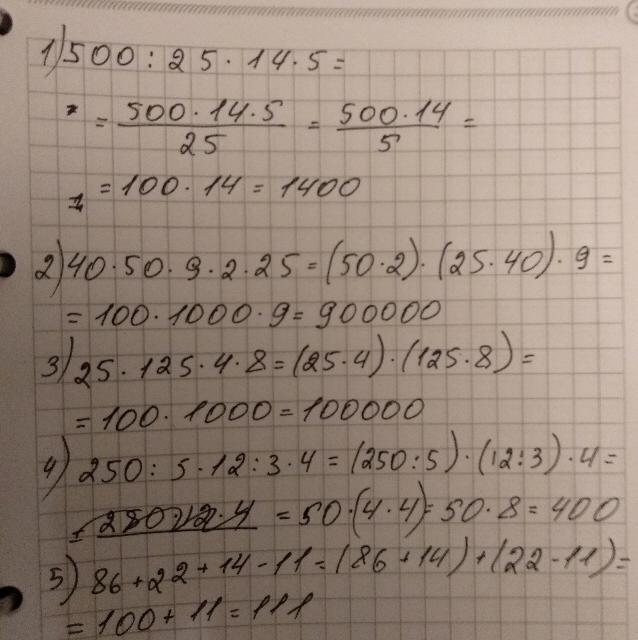 1) 500 : 25 · 14 · 5 =
= \frac{500 · 14 · 5}{25} = \frac{500 · 14}{5} =
= 100 · 14 = 1400
2) 40 · 50 · 9 · 2 · 25 = (50 · 2) · (25 · 40) · 9 =
= 100 · 1000 · 9 = 900000
3) 25 · 125 · 4 · 8 = (25 · 4) · (125 · 8) =
= 100 · 1000 = 100000
4) 250 : 5 · 12 : 3 · 4 = (250 : 5) · (12 : 3) · 4 =
= 50 · (4 · 4) = 50 · 8 = 400
5) 86 + 22 + 14 - 11 = (86 + 14) + (22 - 11) =
= 100 + 11 = 111